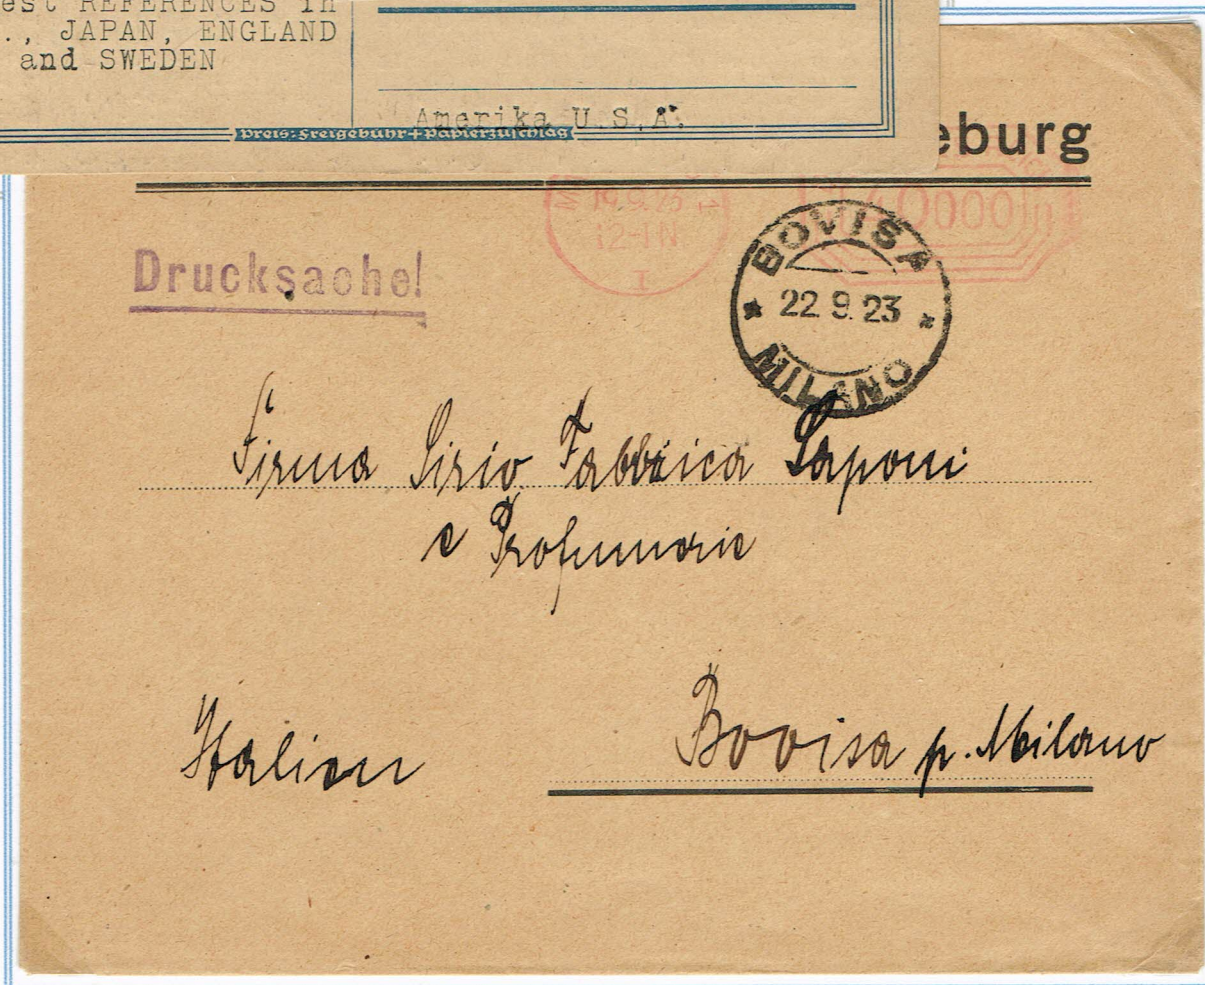 REFERENCES in
., JAPAN, ENGLAND
and SWEDEN
Amerika U.S.A.
Preis: Freigebühr + Papierzuschlag
eburg
19.9.23
12-1 N.
1
40000
Drucksache!
BOVISA
22 9. 23
MILANO
Firma Sirio Fabbrica Saponi
e Profumerie
Italien
Bovisa p. Milano